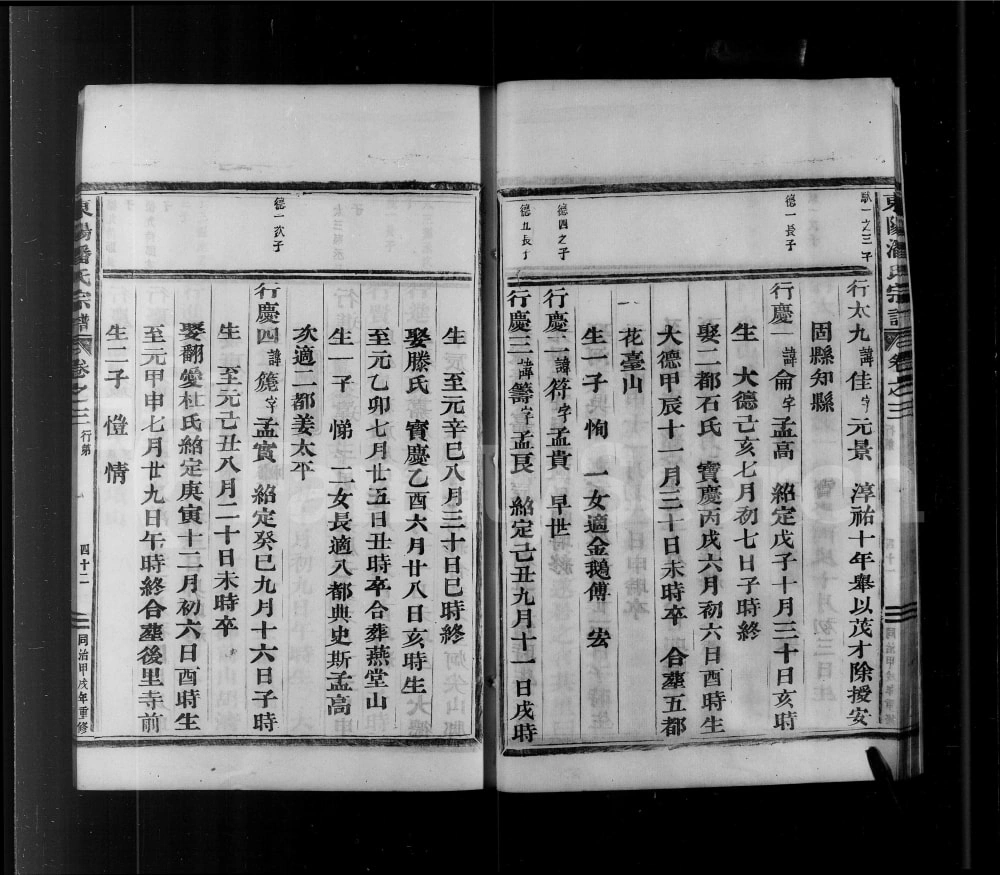 東陽潘氏宗譜 卷之三
馱一之三子
行太九 諱佳 字元景 淳祐十年舉以茂才除授安
固縣知縣
德一長子
行慶一 諱侖 字孟高 紹定戊子十月三十日亥時
生 大德己亥七月初七日子時終
娶二都石氏 寶慶丙戌六月初六日酉時生
大德甲辰十一月三十日未時卒 合墓五都
花臺山
生一子恂 一女適金鵝傅 宏
德四之子
行慶二 諱符 字孟貴 早世
德五長子
行慶三 諱籌 字孟良 紹定己丑九月十一日戌時
生 至元辛巳八月三十日巳時終
娶滕氏 寶慶乙酉六月廿八日亥時生
至元乙卯七月廿五日丑時卒合葬燕堂山
生一子 悌 二女長適八都典史斯孟高
次適二都姜太平
德一次子
行慶四 諱 字孟賓 紹定癸巳九月十六日子時
生 至元己丑八月二十日未時卒
娶翻 杜氏紹定庚寅十二月初六日酉時生
至元甲申七月廿九日午時終合墓後里寺前
生二子 愷 情
東陽潘氏宗譜 卷之三 行第 四十二 同治甲戌年重修